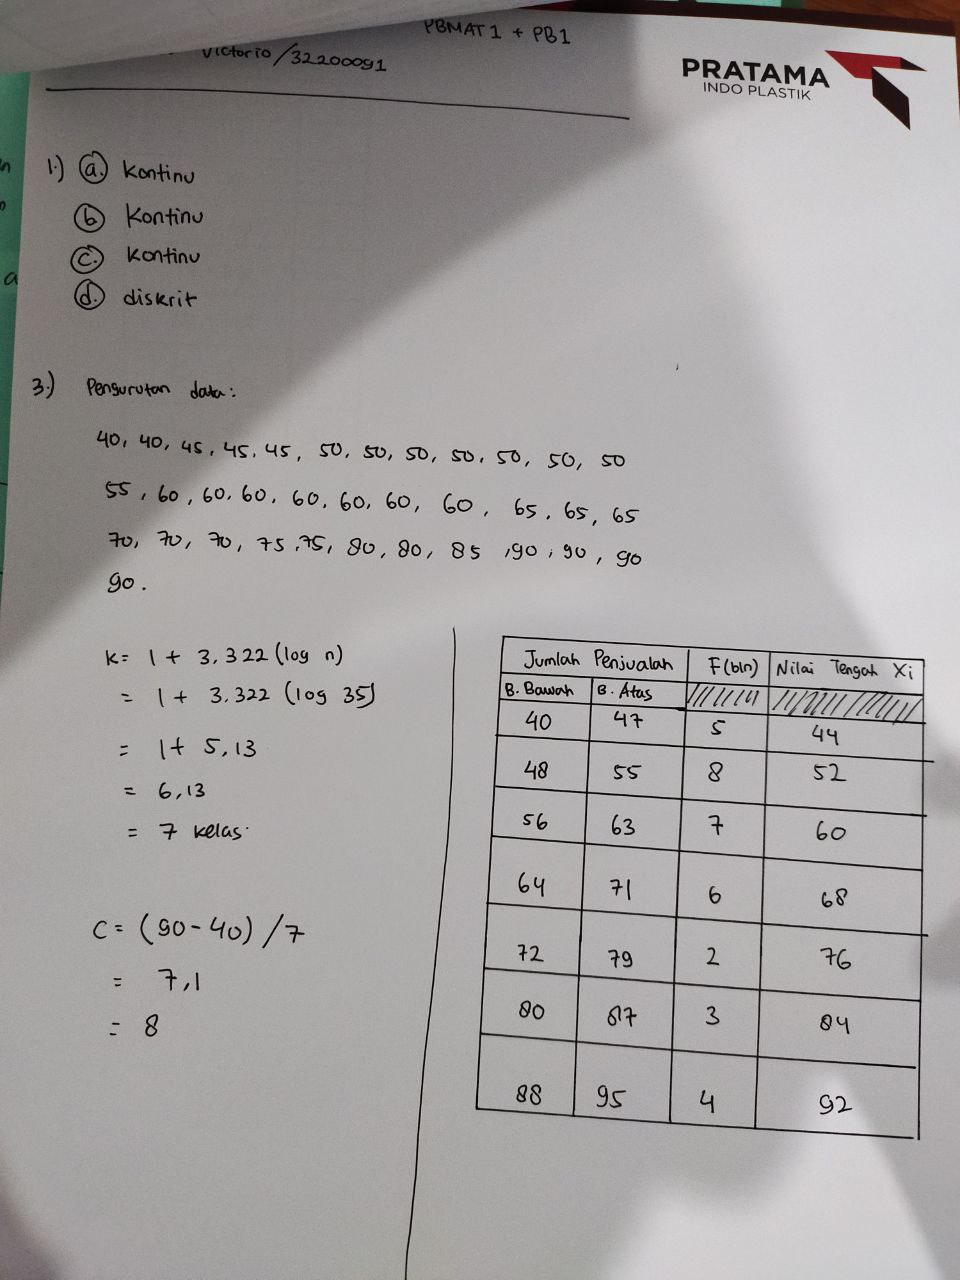 PBMAT 1 + PB1
Victorio/32200091
PRATAMA
INDO PLASTIK
1.) a. Kontinu
b Kontinu
c. Kontinu
d. diskrit
3.) Pengurutan data:
40, 40, 45, 45, 45, 50, 50, 50, 50, 50, 50, 50
55, 60, 60, 60, 60, 60, 60, 60, 65, 65, 65
70, 70, 70, 75, 75, 80, 80, 85, 90, 90, 90
90.
K= 1 + 3,322 (log n)
= 1 + 3.322 (log 35)
= 1+ 5,13
= 6,13
= 7 kelas.
C = (90-40)/7
= 7,1
= 8
Jumlah Penjualan F(bln) Nilai Tengah Xi
B. Bawah B. Atas
40 47 5 44
48 55 8 52
56 63 7 60
64 71 6 68
72 79 2 76
80 87 3 84
88 95 4 92